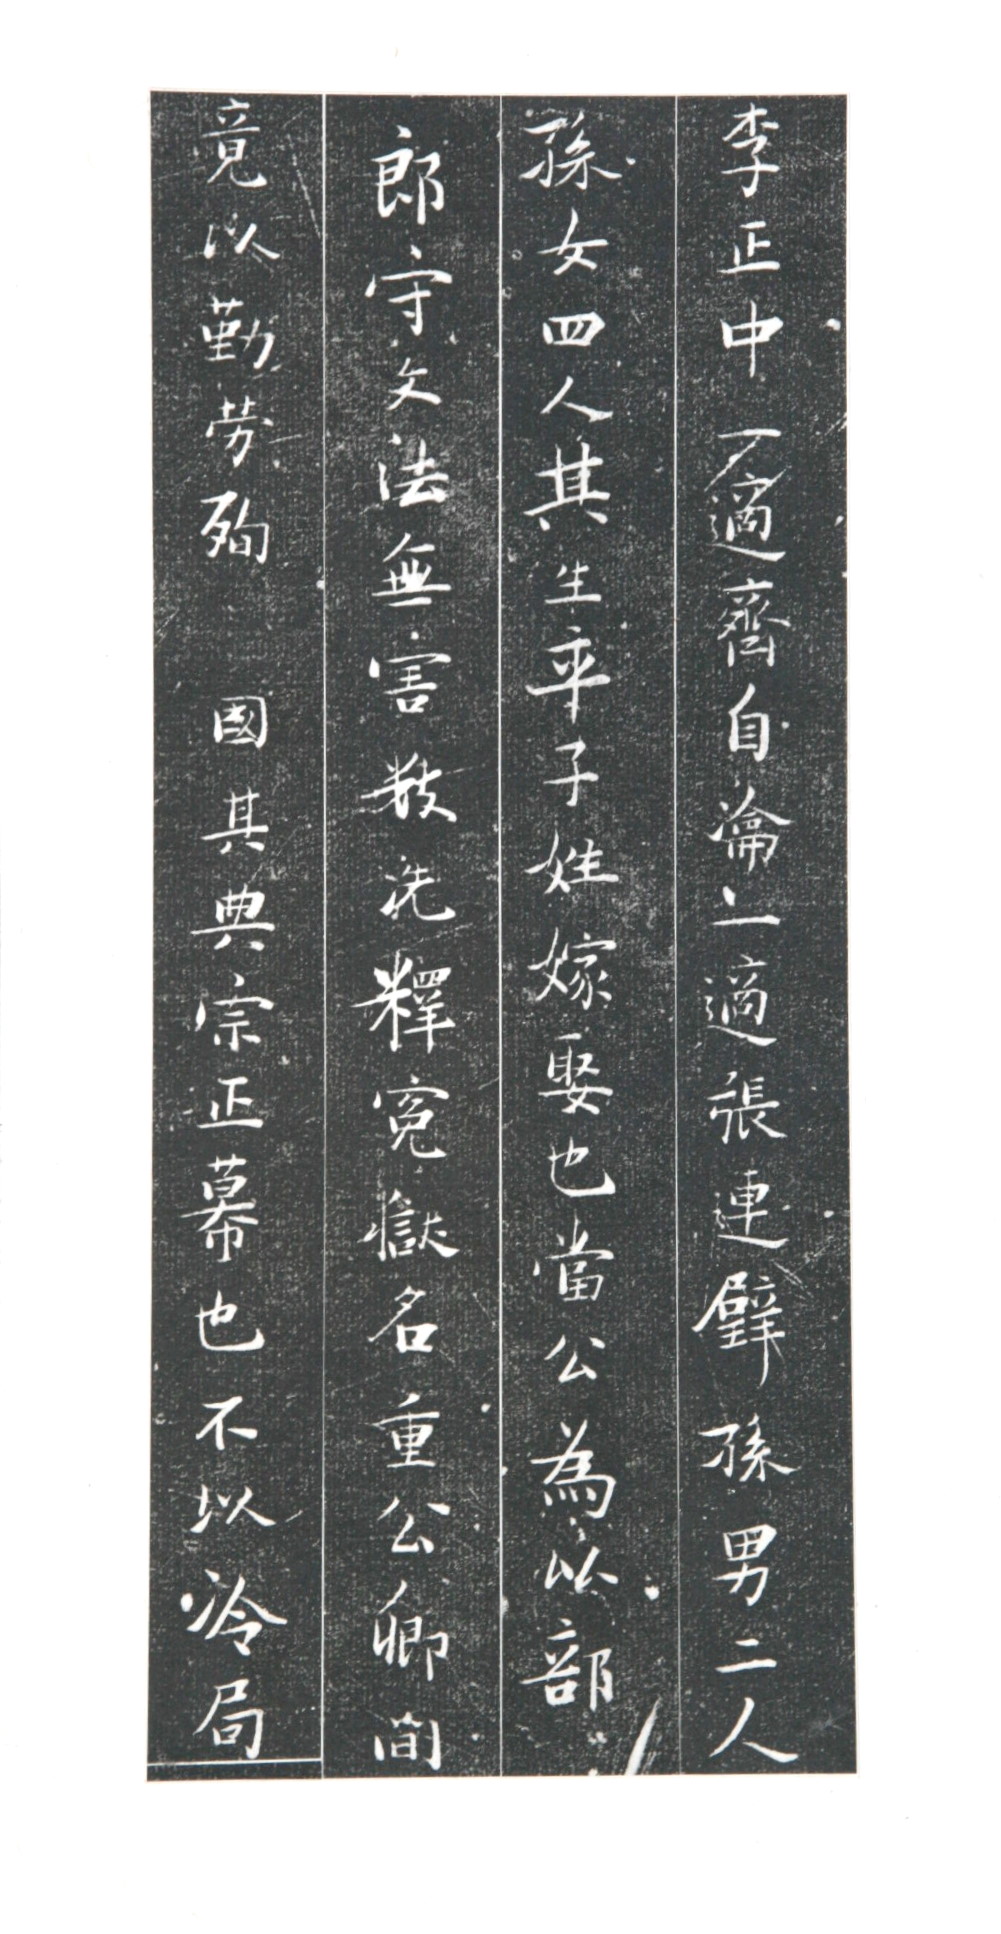 李正中一適齊自淪一適張連璧孫男二人
孫女四人其生卒子姓嫁娶也當公為以部
郎守文法無害數洗釋冤獄名重公卿間
竟以勤劳殉國其典宗正幕也不以冷局